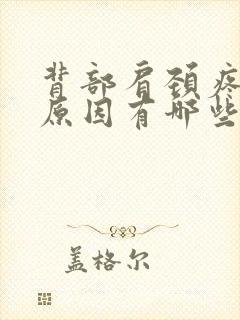 背部肩颈疼
原因有哪些
盖格尔